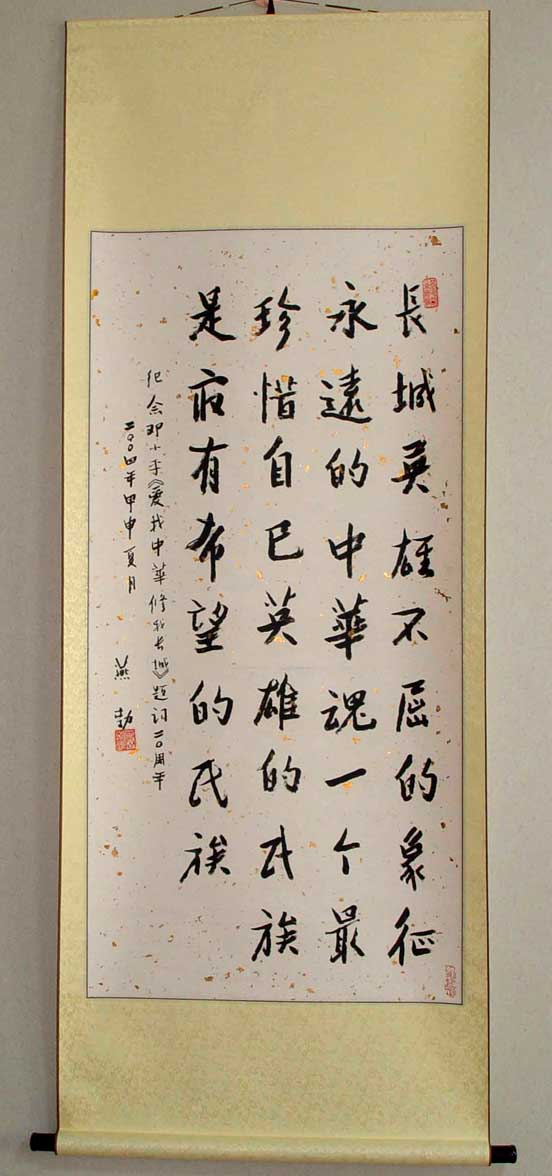 長城英雄不屈的象征
永遠的中華魂一个最
珍惜自己英雄的民族
是冣有希望的民族
纪念邓小平《爱我中華修我长城》题词二〇周年
二〇〇四年甲申夏月
燕